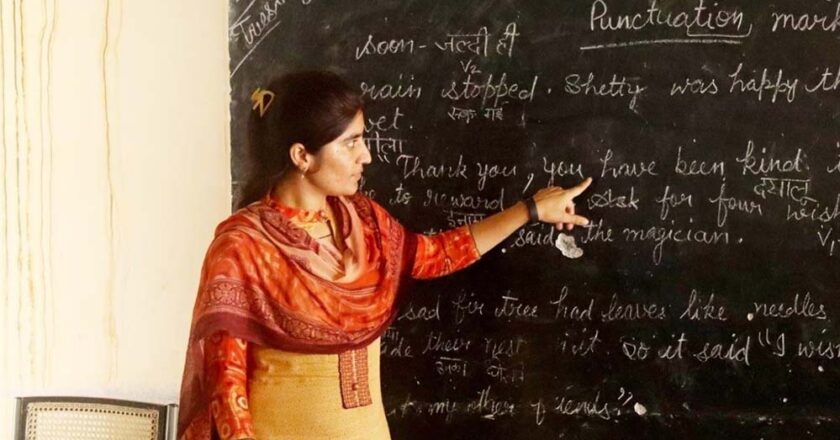 Punctuation, mark
soon - जल्दी ही
V₂
rain stopped. Shetty was happy th
रुक गई
wet.
गीला
"Thank you, you have been kind.
दयालु
to reward for four wis
इनाम
V₁
said the magician.
sad fir tree had leaves like needles
their nest in it. So it said "I wis
उनका
to my other friends."